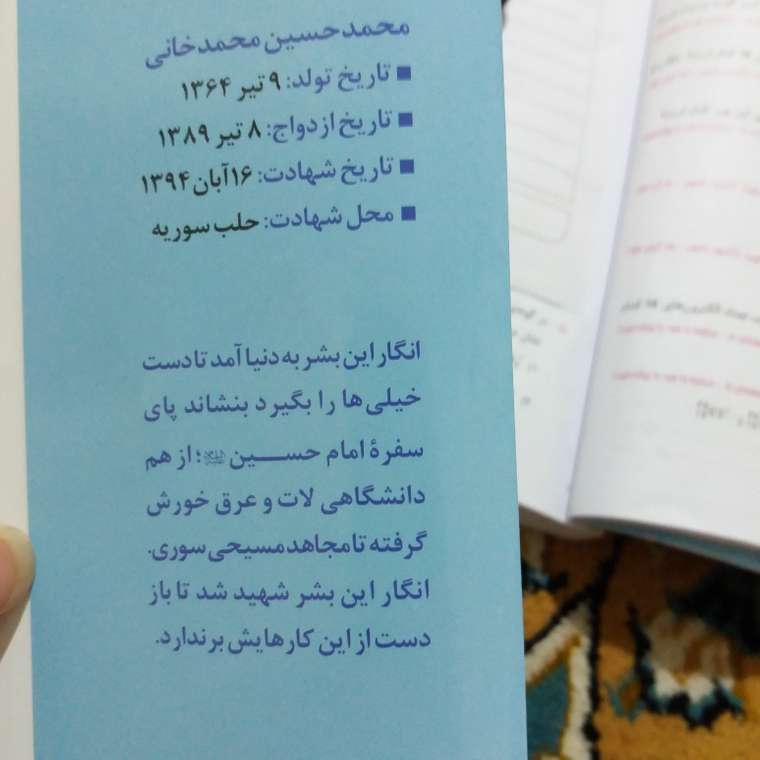 محمدحسین محمدخانی
■ تاریخ تولد: ۹ تیر ۱۳۶۴
■ تاریخ ازدواج: ۸ تیر ۱۳۸۹
■ تاریخ شهادت: ۱۶ آبان ۱۳۹۴
■ محل شهادت: حلب سوریه
انگار این بشر به دنیا آمد تا دست
خیلی‌ها را بگیرد بنشاند پای
سفرۀ امام حسین؛ از هم
دانشگاهی لات و عرق خورش
گرفته تا مجاهد مسیحی سوری.
انگار این بشر شهید شد تا باز
دست از این کارهایش برندارد.